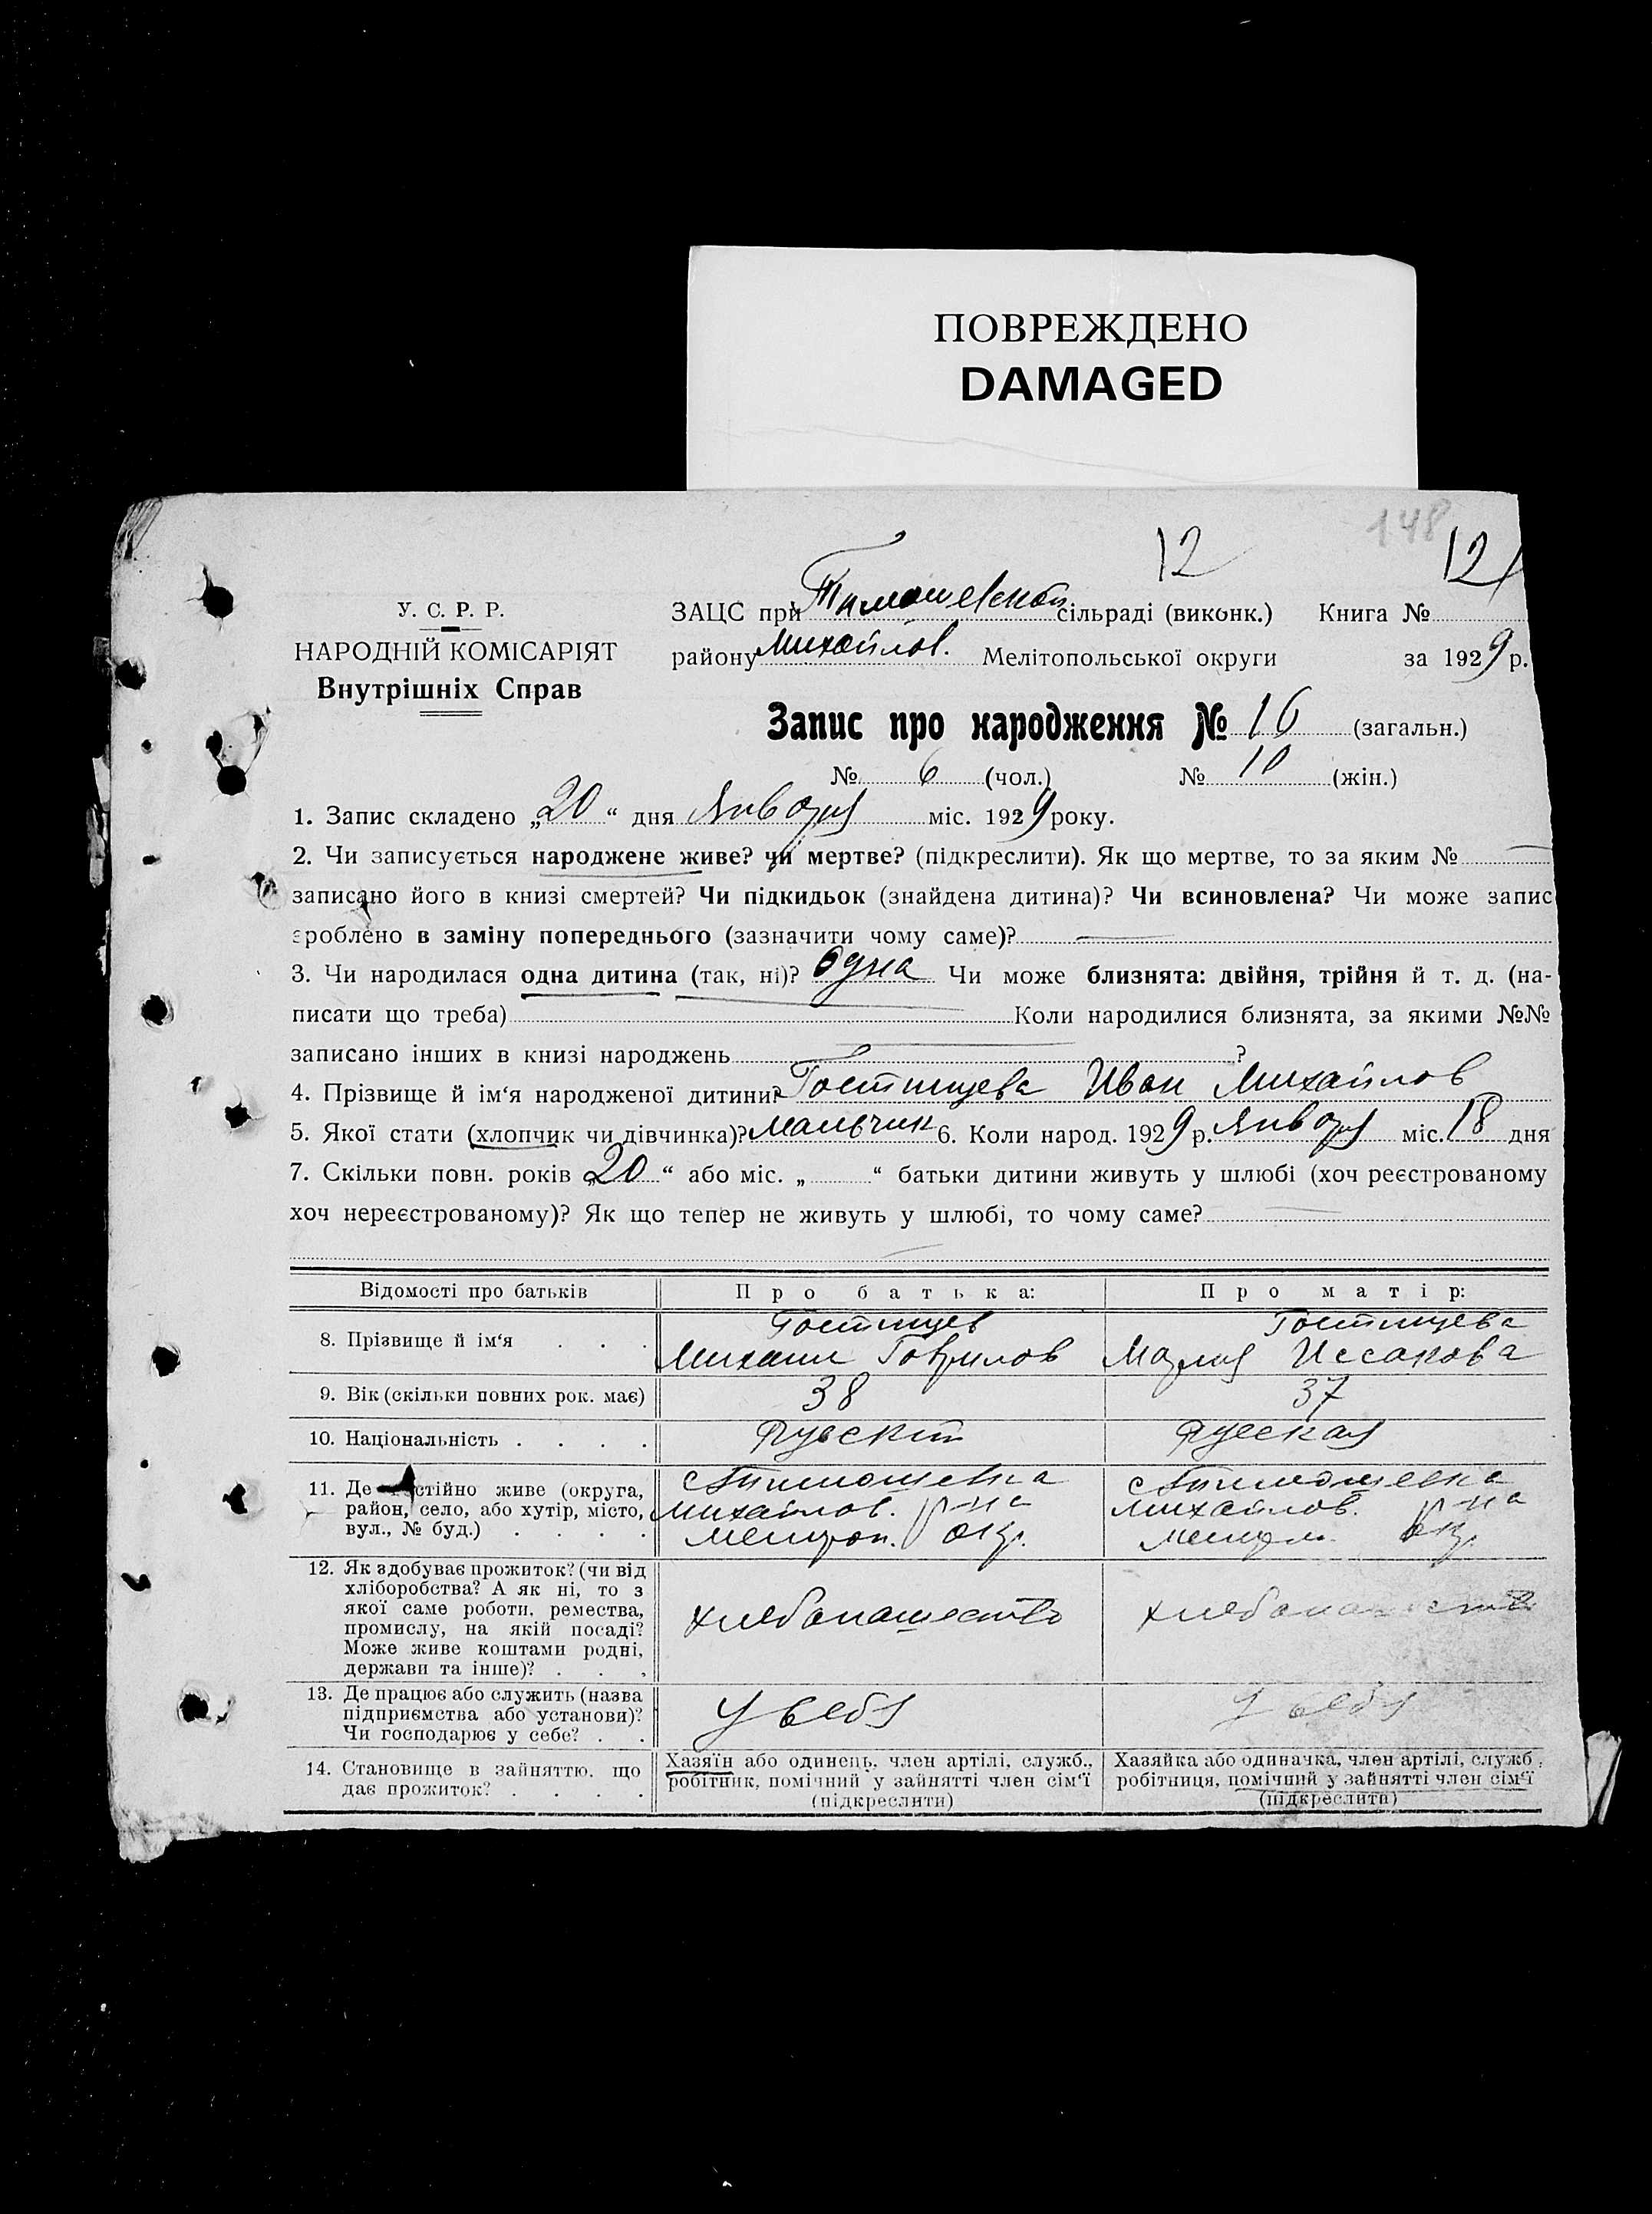 ПОВРЕЖДЕНО
DAMAGED
148
12 12
У. С. Р. Р.
НАРОДНІЙ КОМІСАРІЯТ
Внутрішніх Справ
ЗАЦС при Тимошевской сільраді (виконк.) Книга №
району Михайлов. Мелітопольської округи за 1929 р.
Запис про народження № 16 (загальн.)
№ 6 (чол.) № 10 (жін.)
1. Запис складено „20“ дня Января міс. 1929 року.
2. Чи записується народжене живе? чи мертве? (підкреслити). Як що мертве, то за яким № —
записано його в книзі смертей? Чи підкидьок (знайдена дитина)? Чи всиновлена? Чи може запис
зроблено в заміну попереднього (зазначити чому саме)? —
3. Чи народилася одна дитина (так, ні)? одна Чи може близнята: двійня, трійня й т. д. (на-
писати що треба) Коли народилися близнята, за якими №№
записано інших в книзі народжень ?
4. Прізвище й ім‘я народженої дитини? Гостищева Иван Михайлов
5. Якої стати (хлопчик чи дівчинка)? мальчик 6. Коли народ. 1929 р. Января міс. 18 дня
7. Скільки повн. років „20“ або міс. „ “ батьки дитини живуть у шлюбі (хоч реєстрованому
хоч нереєстрованому)? Як що тепер не живуть у шлюбі, то чому саме? —
Відомості про батьків Про батька: Про матір:
8. Прізвище й ім‘я . . . Гостищев Михаил Гаврилов Гостищева Мария Иссакова
9. Вік (скільки повних рок. має) 38 37
10. Національність . . . . Русский Русская
11. Де постійно живе (округа,
район, село, або хутір, місто,
вул., № буд.) . . . .
с Тимошевка
Михайлов. р-на
Мелитоп. окр.
с Тимошевка
Михайлов. р-на
Мелитоп. окр.
12. Як здобуває прожиток? (чи від
хліборобства? А як ні, то з
якої саме роботи, ремества,
промислу, на якій посаді?
Може живе коштами родні,
держави та інше)? . . .
хлебопашество
хлебопашество
13. Де працює або служить (назва
підприємства або установи)?
Чи господарює у себе? . .
У себя
У себя
14. Становище в зайняттю, що
дає прожиток? . . . .
Хазяїн або одинець, член артілі, служб.,
робітник, помічний у зайнятті член сім‘ї
(підкреслити)
Хазяйка або одиначка, член артілі, служб.,
робітниця, помічний у зайнятті член сім‘ї
(підкреслити)